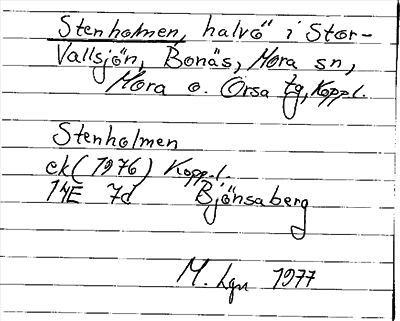 Stenholmen, halvö i Stor-
Vallsjön, Bonäs, Mora sn,
Mora o. Orsa tg, Koppl.
Stenholmen
ek (1976) Koppl.
14E 7d Björnsaberg
M. Lgn 1977